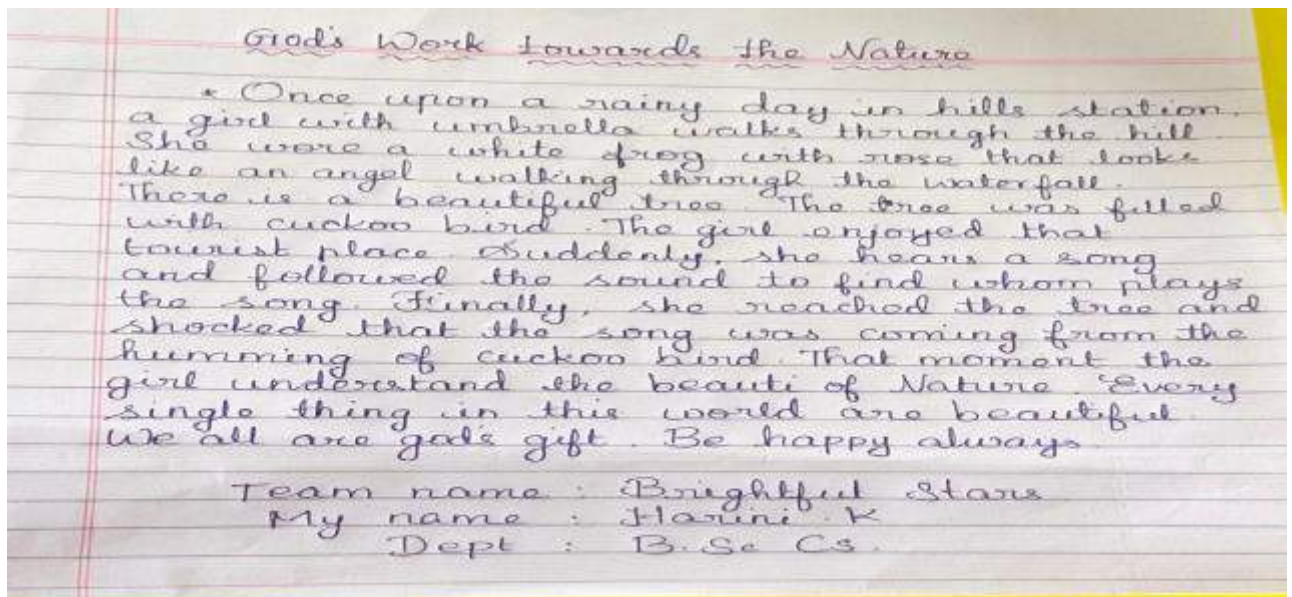 God's Work towards the Nature
* Once upon a rainy day in hills station.
a girl with umbrella walks through the hill.
She wore a white frog with rose that looks
like an angel walking through the waterfall.
There is a beautiful tree. The tree was filled
with cuckoo bird. The girl enjoyed that
tourist place. Suddenly, she hears a song
and followed the sound to find whom plays
the song. Finally, she reached the tree and
shocked that the song was coming from the
humming of cuckoo bird. That moment the
girl understand the beauti of Nature. Every
single thing in this world are beautiful.
We all are god's gift. Be happy always.
Team name : Brightful Stars
My name : Harini. K
Dept : B. Sc Cs.